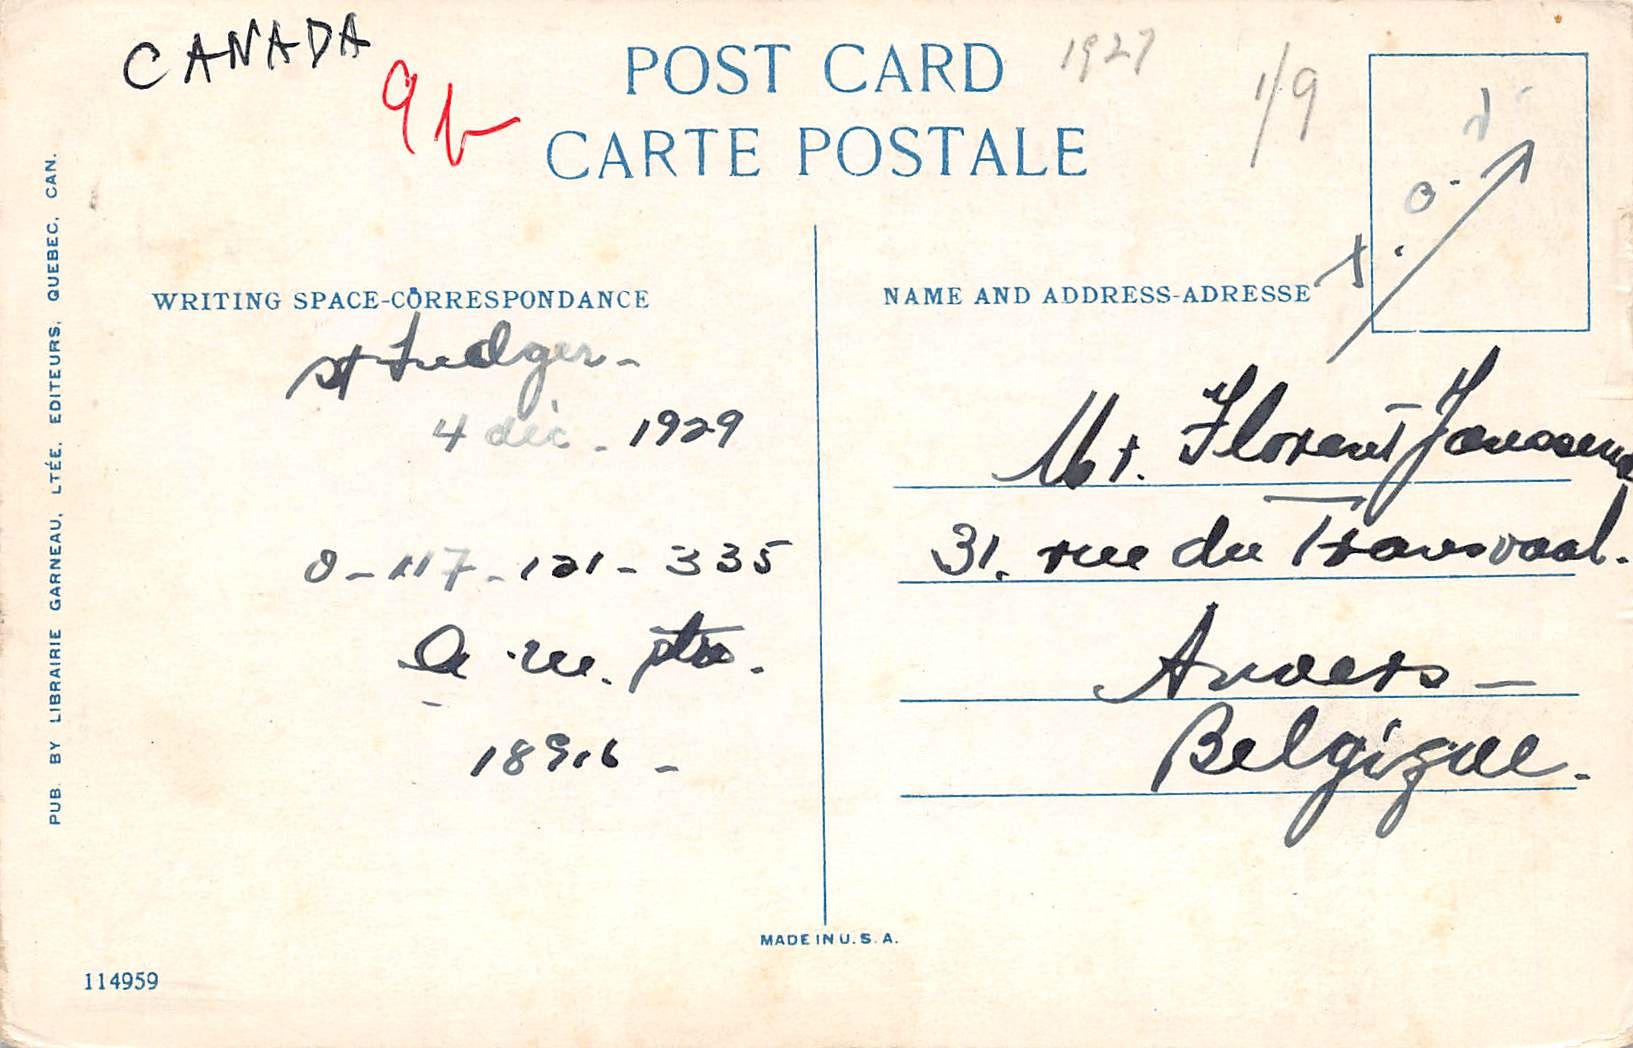 CANADA
POST CARD
1927
1/9
CARTE POSTALE
PUB. BY LIBRAIRIE GARNEAU, LTÉE, EDITEURS, QUEBEC, CAN.
WRITING SPACE-CORRESPONDANCE
St Ludger-
4 déc. 1929
0-117-121-335
189.16-
NAME AND ADDRESS-ADRESSE
Mr. Florent Janssens
31. rue du Transvaal.
Anvers-
Belgique.
MADE IN U.S.A.
114959